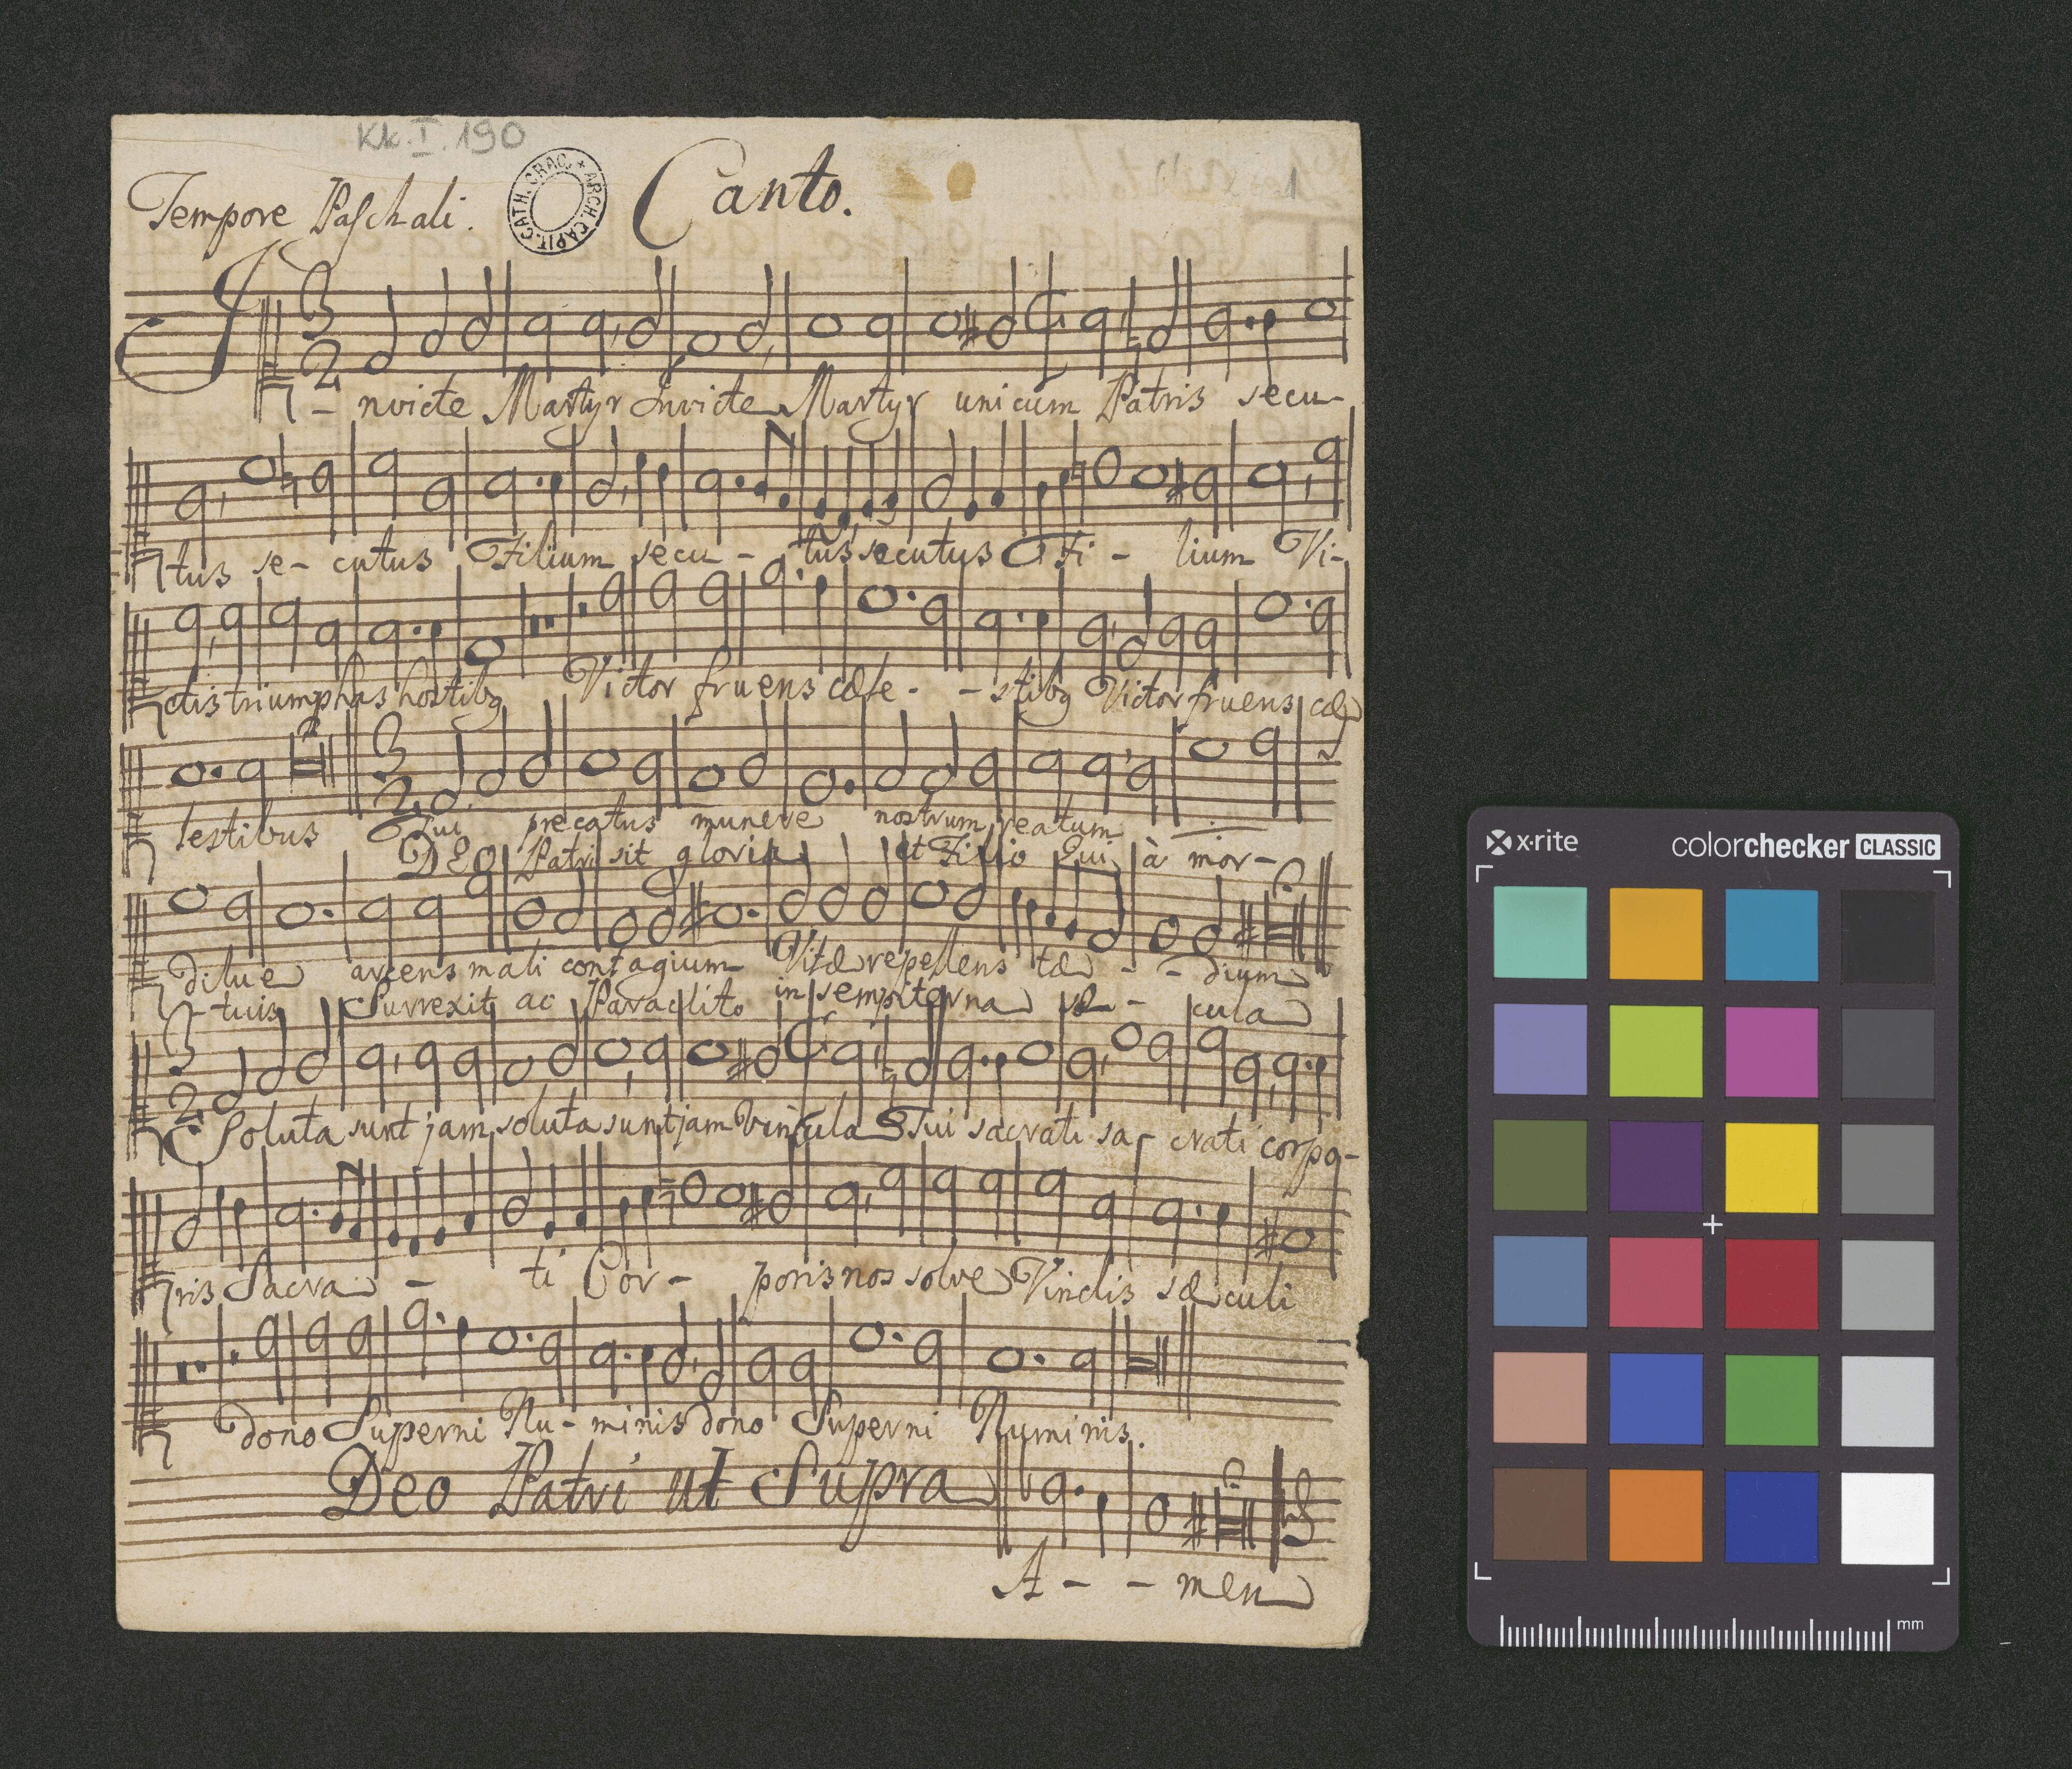 Kk. I. 190
Tempore Paschali.
ARCH. CAPIT. CATH. CRAC.
Canto.
1
3 2
I - nvicte Martyr Invicte Martyr unicum Patris secu-
tus se- cutus Filium secu - tus secutus Fi - lium Vi-
ctis triumphas hostibq Victor fruens cæle - - stibq Victor fruens cæ
3 2
lestibus Qui precatus munere nostrum reatum
DEO Patri sit gloria et Filio Qui à mor-
dilue arcens mali contagium Vitæ repellens tæ - - dium
- tuis Surrexit ac Paraclito in sempiterna sæ - cula
3 2
Soluta sunt jam soluta sunt jam Vincula Tui sacrati sa- crati corpo-
ris Sacra - ti Cor - poris nos solve Vinclis sæculi
dono Superni Nu- minis dono Superni Numinis.
Deo Patri ut Supra
A - - men
x·rite colorchecker CLASSIC
mm